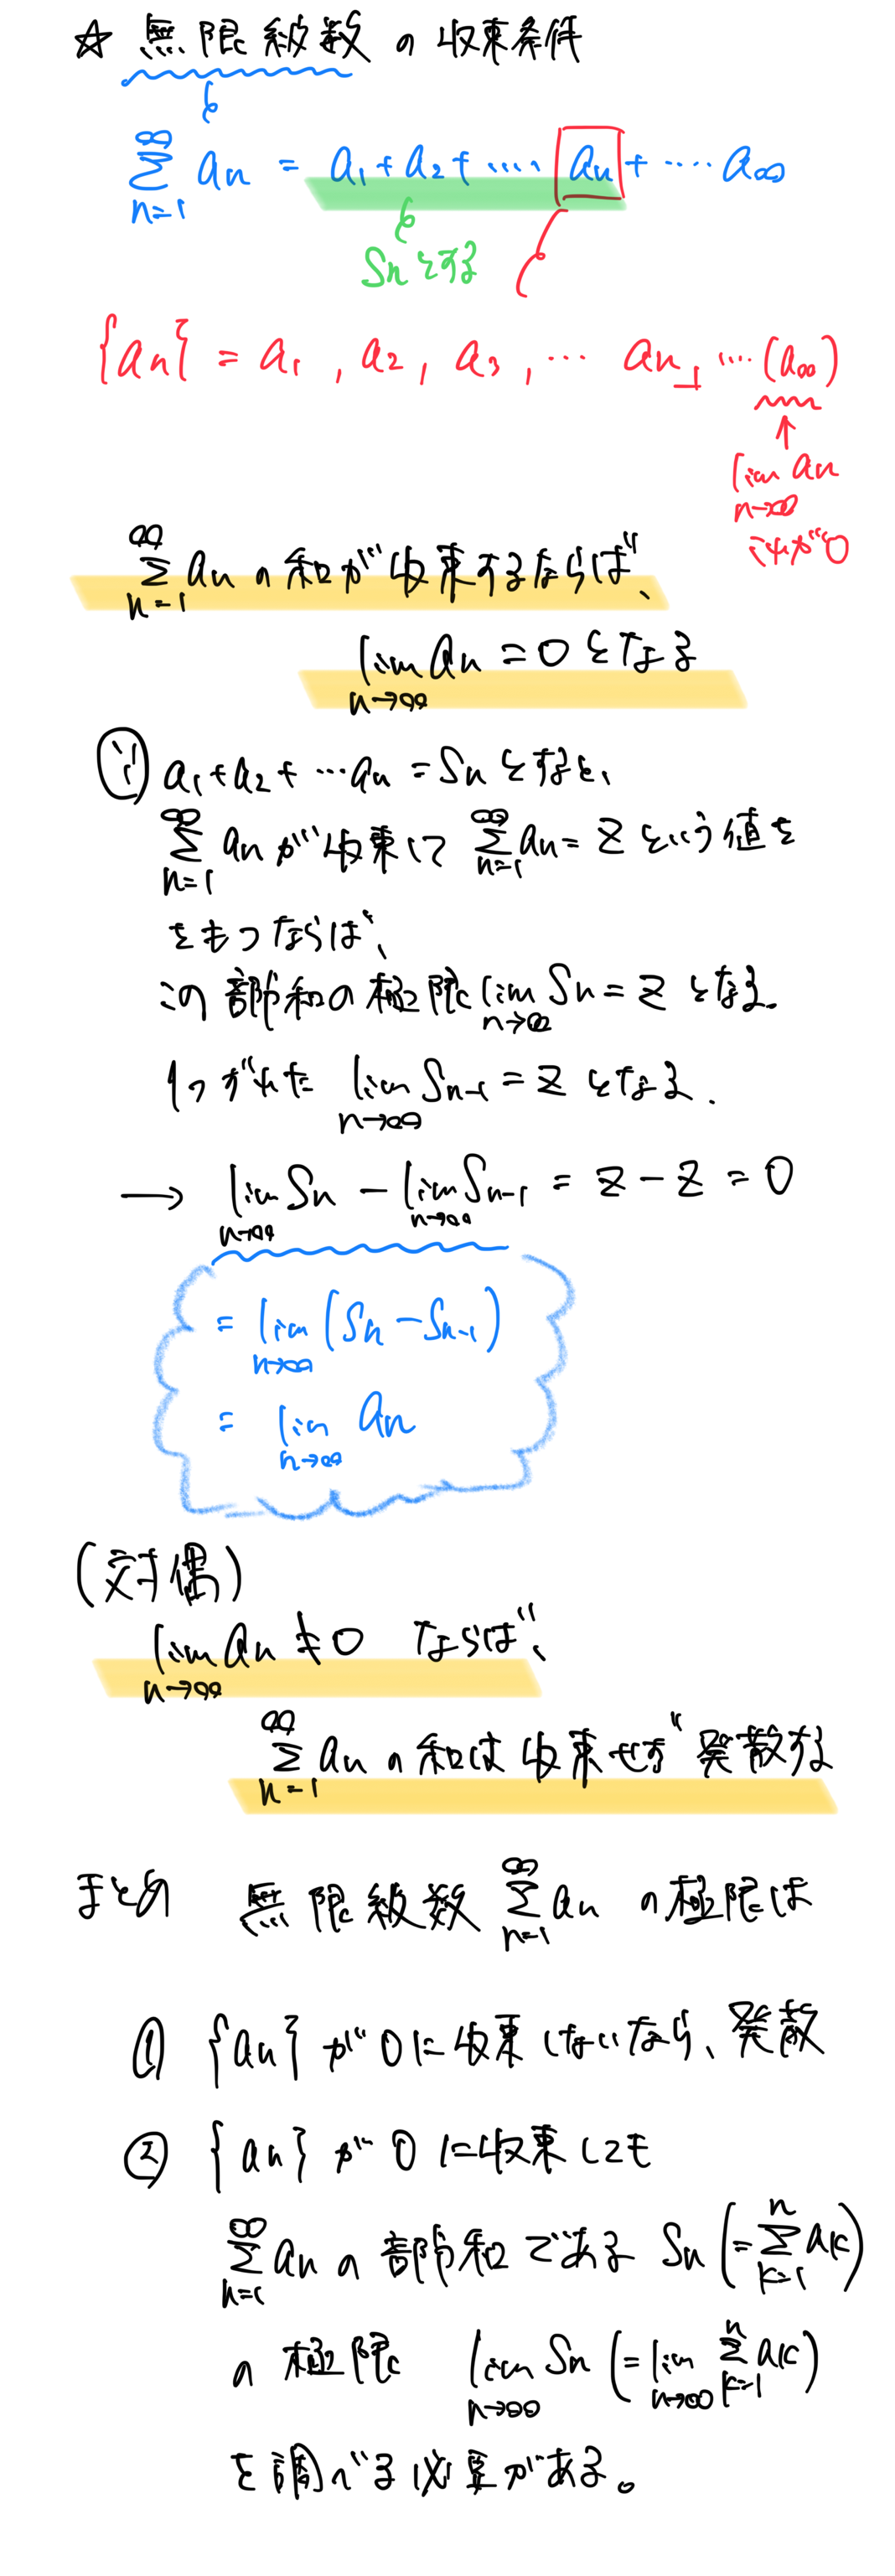 ☆ 無限級数の収束条件
∞Σn=1 an = a1 + a2 + ‥‥ an + ‥‥ a∞
Snとする
{an} = a1 , a2 , a3 , … an , ‥‥ (a∞)
↑
lim n→∞ an
これが0
∞Σn=1 an の和が収束するならば、
lim n→∞ an = 0 となる
∵ a1 + a2 + … an = Sn とすると、
∞Σn=1 an が収束して ∞Σn=1 an = Z という値を
をもつならば、
この部分和の極限 lim n→∞ Sn = Z となる.
1つずれた lim n→∞ Sn-1 = Z となる.
→ lim n→∞ Sn − lim n→∞ Sn-1 = Z − Z = 0
= lim n→∞ (Sn − Sn-1)
= lim n→∞ an
(対偶)
lim n→∞ an ≠ 0 ならば、
∞Σn=1 an の和は収束せず発散する
まとめ 無限級数 ∞Σn=1 an の極限は
① {an} が0に収束しないなら、発散
② {an} が0に収束しても
∞Σn=1 an の部分和である Sn (= nΣk=1 ak)
の極限 lim n→∞ Sn (= lim n→∞ nΣk=1 ak)
を調べる必要がある。